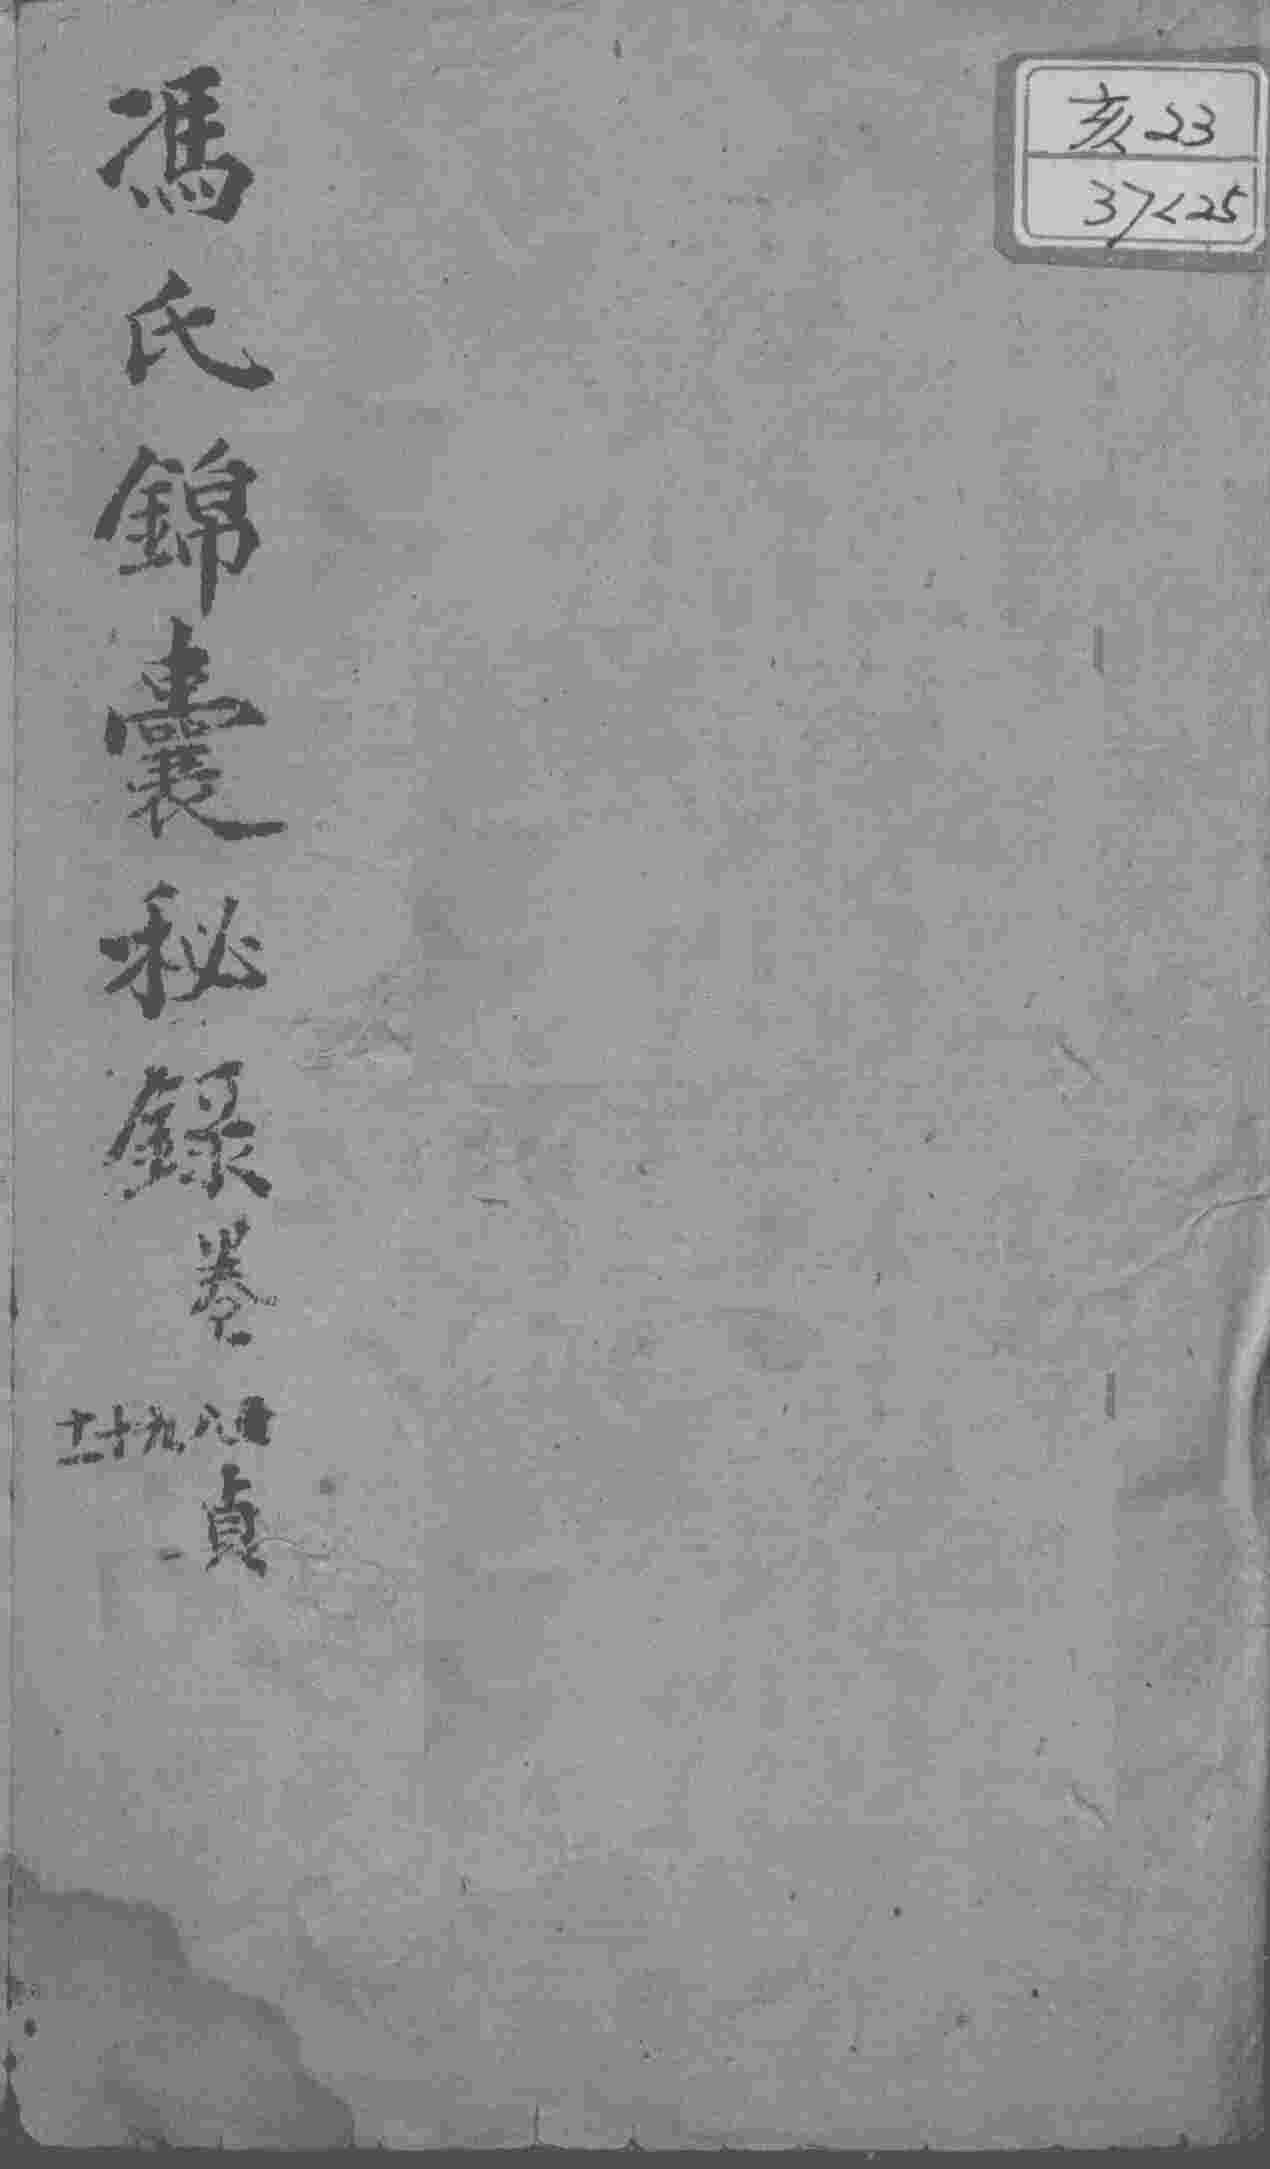 亥23
37<25
馮氏錦囊秘録
卷
八九十十二
貞